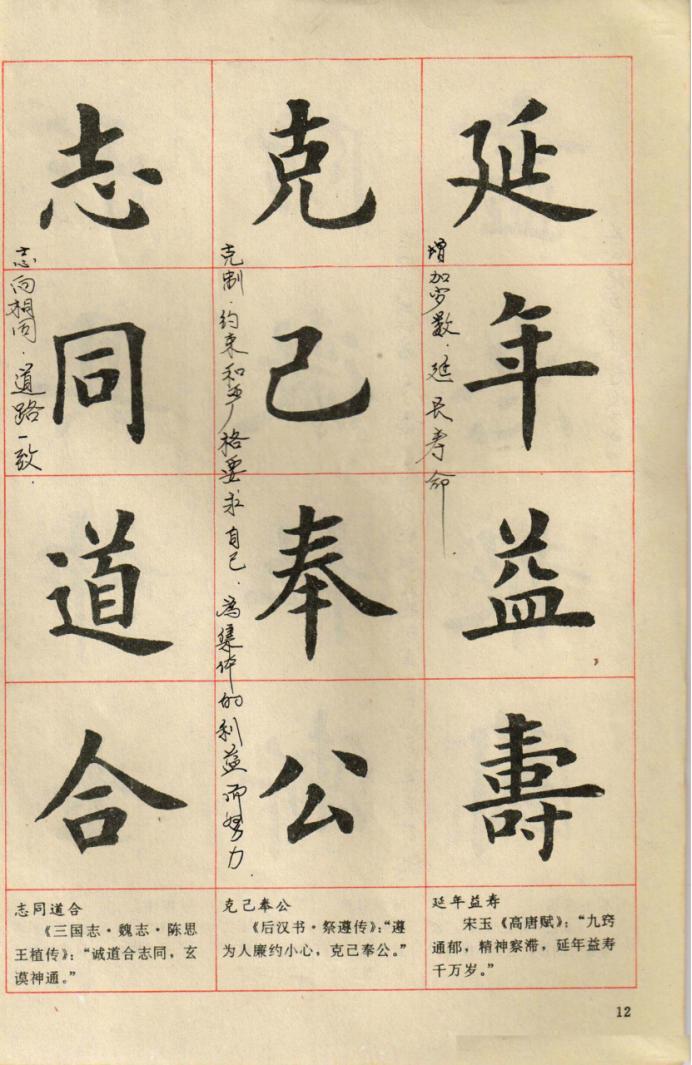 延年益壽
增加岁数．延长寿命
克己奉公
克制．约束和严格要求自己．为集体的利益而努力．
志同道合
志向相同．道路一致．
延年益寿
宋玉《高唐赋》：“九窍
通郁，精神察滞，延年益寿
千万岁。”
克己奉公
《后汉书·祭遵传》：“遵
为人廉约小心，克己奉公。”
志同道合
《三国志·魏志·陈思
王植传》：“诚道合志同，玄
谟神通。”
12